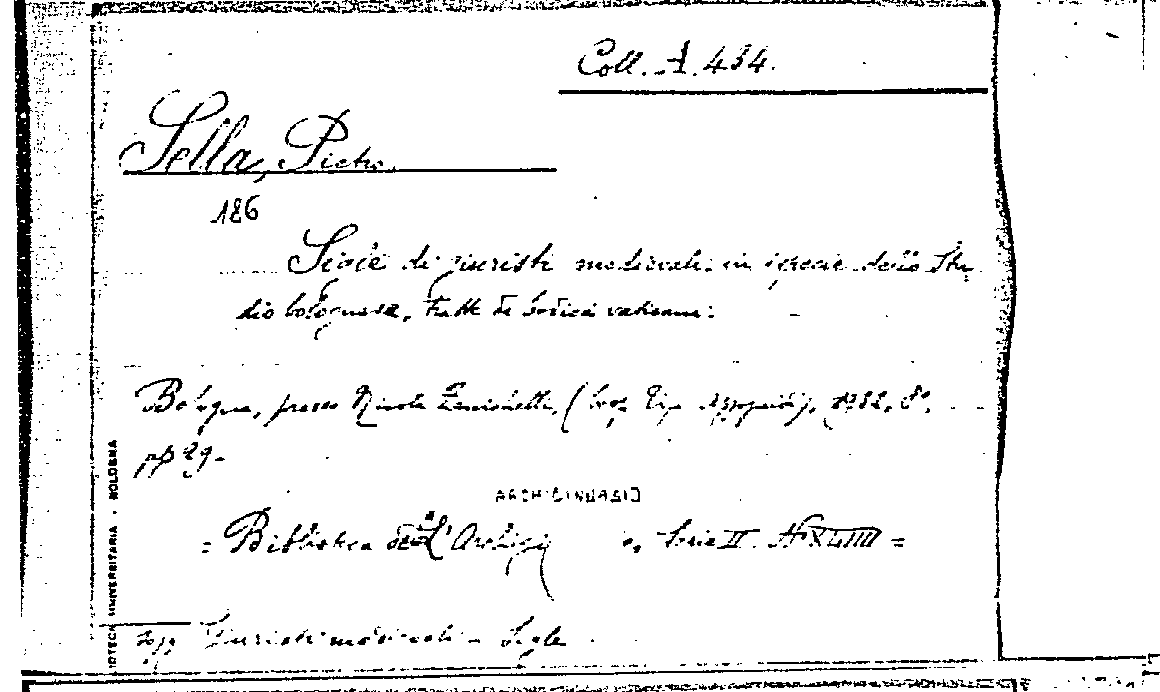 Coll. A. 434.
Sella, Pietro
186
Sigle di giuristi medievali, in ispecie dello Stu-
dio bolognese, tratte dai codici vaticani.
Bologna, presso Nicola Zanichelli, (Coop. Tip. Azzoguidi), 1932, 8°,
pp 29.
ARCHIGINNASIO
= Biblioteca de "L'Archigi Serie II. N° XLIIII =
sogg Giuristi medievali - Sigle
BIOTECA UNIVERSITARIA . BOLOGNA